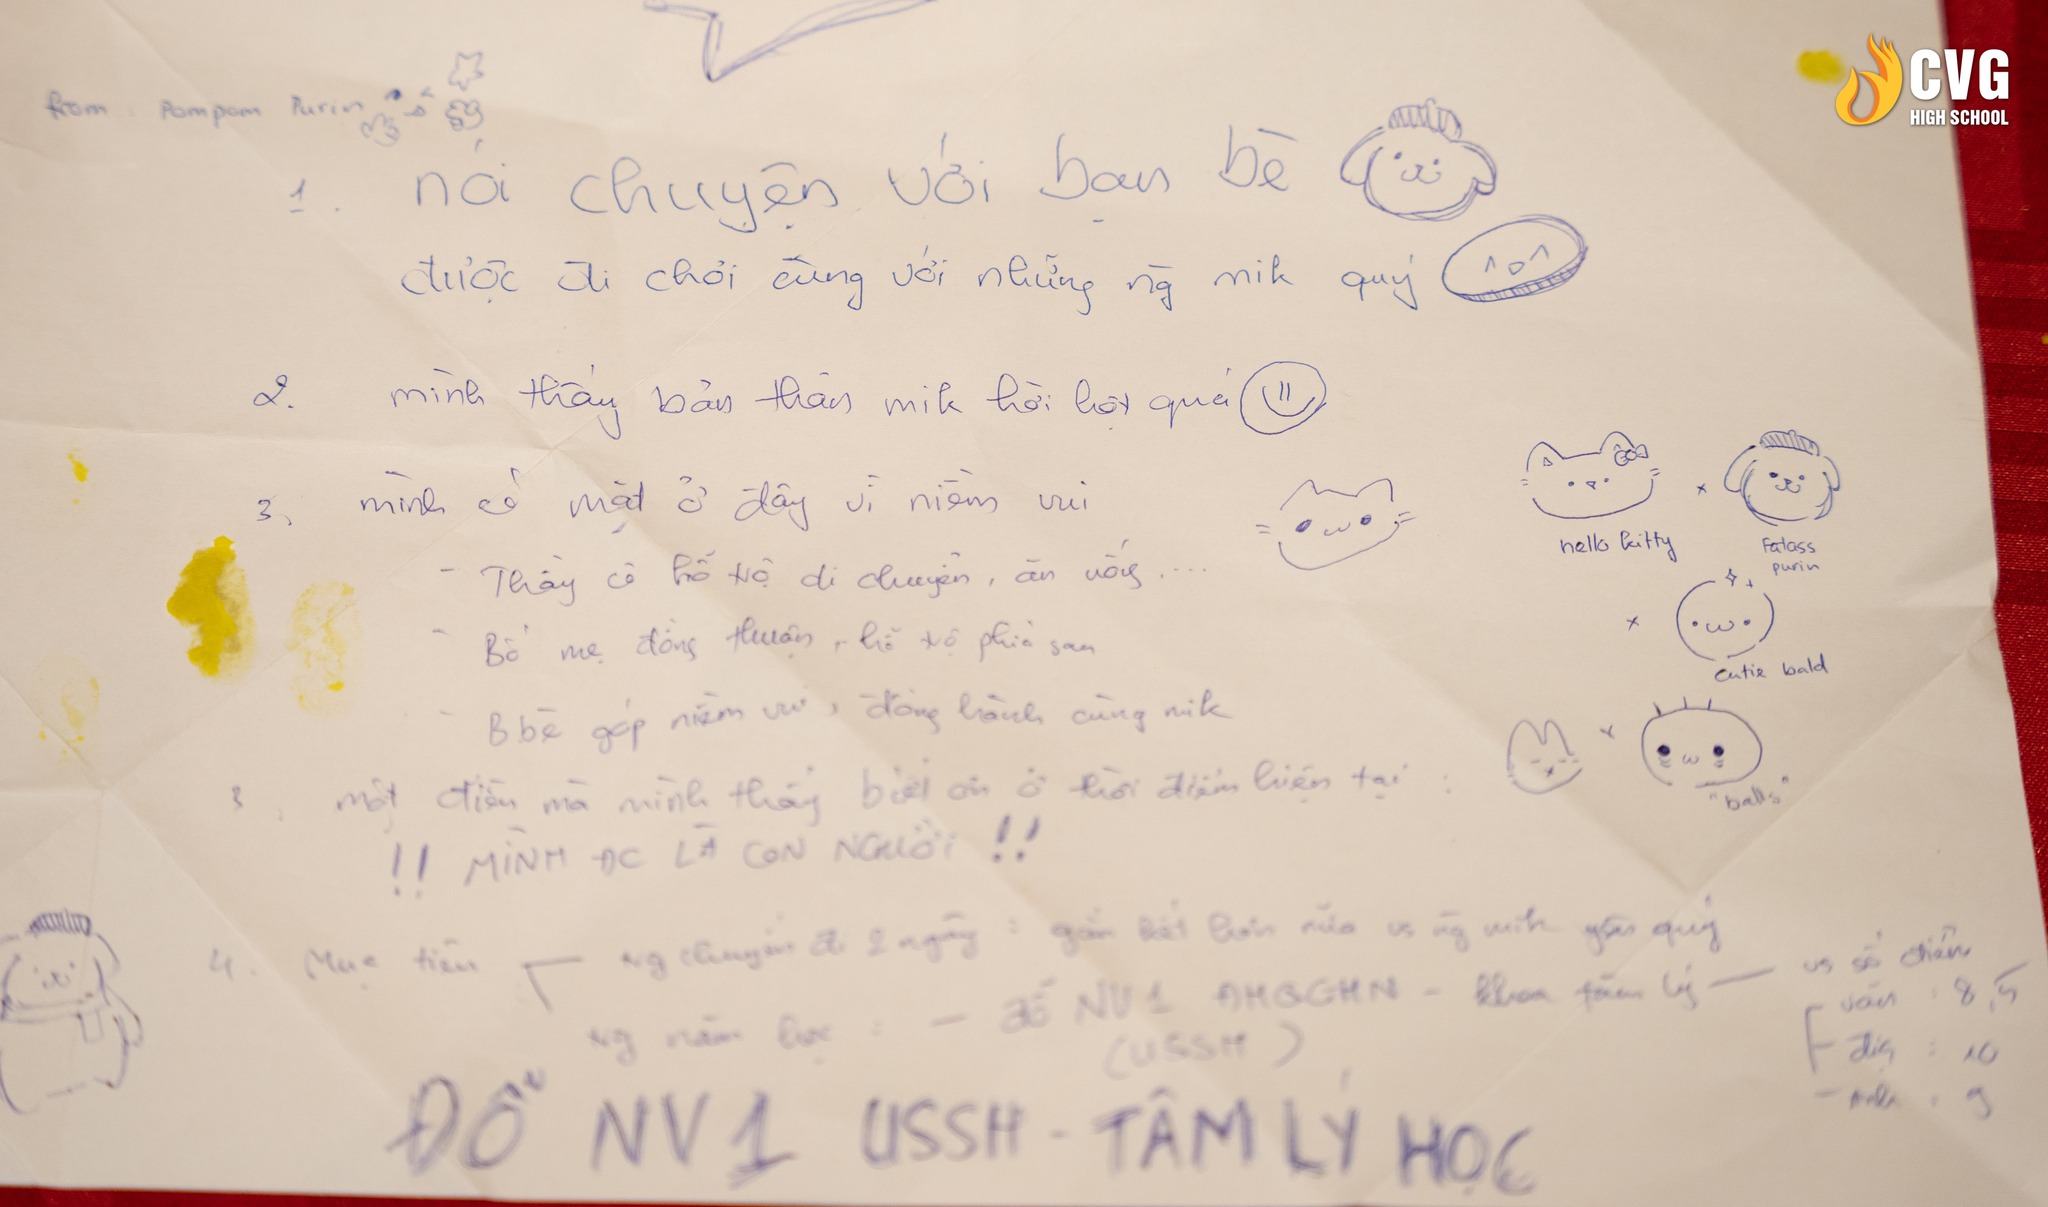 CVG
HIGH SCHOOL
from : Pompom Purin
1. nói chuyện với bạn bè
được đi chơi cùng với những ng mik quý
2. mình thấy bản thân mik hời hợt quá
3. mình có mặt ở đây vì niềm vui
- Thầy cô hỗ trợ di chuyển, ăn uống....
- Bố mẹ đồng thuận, hỗ trợ phía sau
- B.bè góp niềm vui, đồng hành cùng mik
hello kitty x Fatass purin
x cutie bald
x "balls"
3. một điều mà mình thấy biết ơn ở thời điểm hiện tại :
!! MÌNH ĐC LÀ CON NGƯỜI !!
4. Mục tiêu trg chuyến đi 2 ngày : gắn kết hơn nữa vs ng mik yêu quý
trg năm học : - đỗ NV1 ĐHQGHN - khoa tâm lý - vs số điểm
(USSH)
văn : 8,5
địa : 10
- Anh : 9
ĐỖ NV1 USSH - TÂM LÝ HỌC